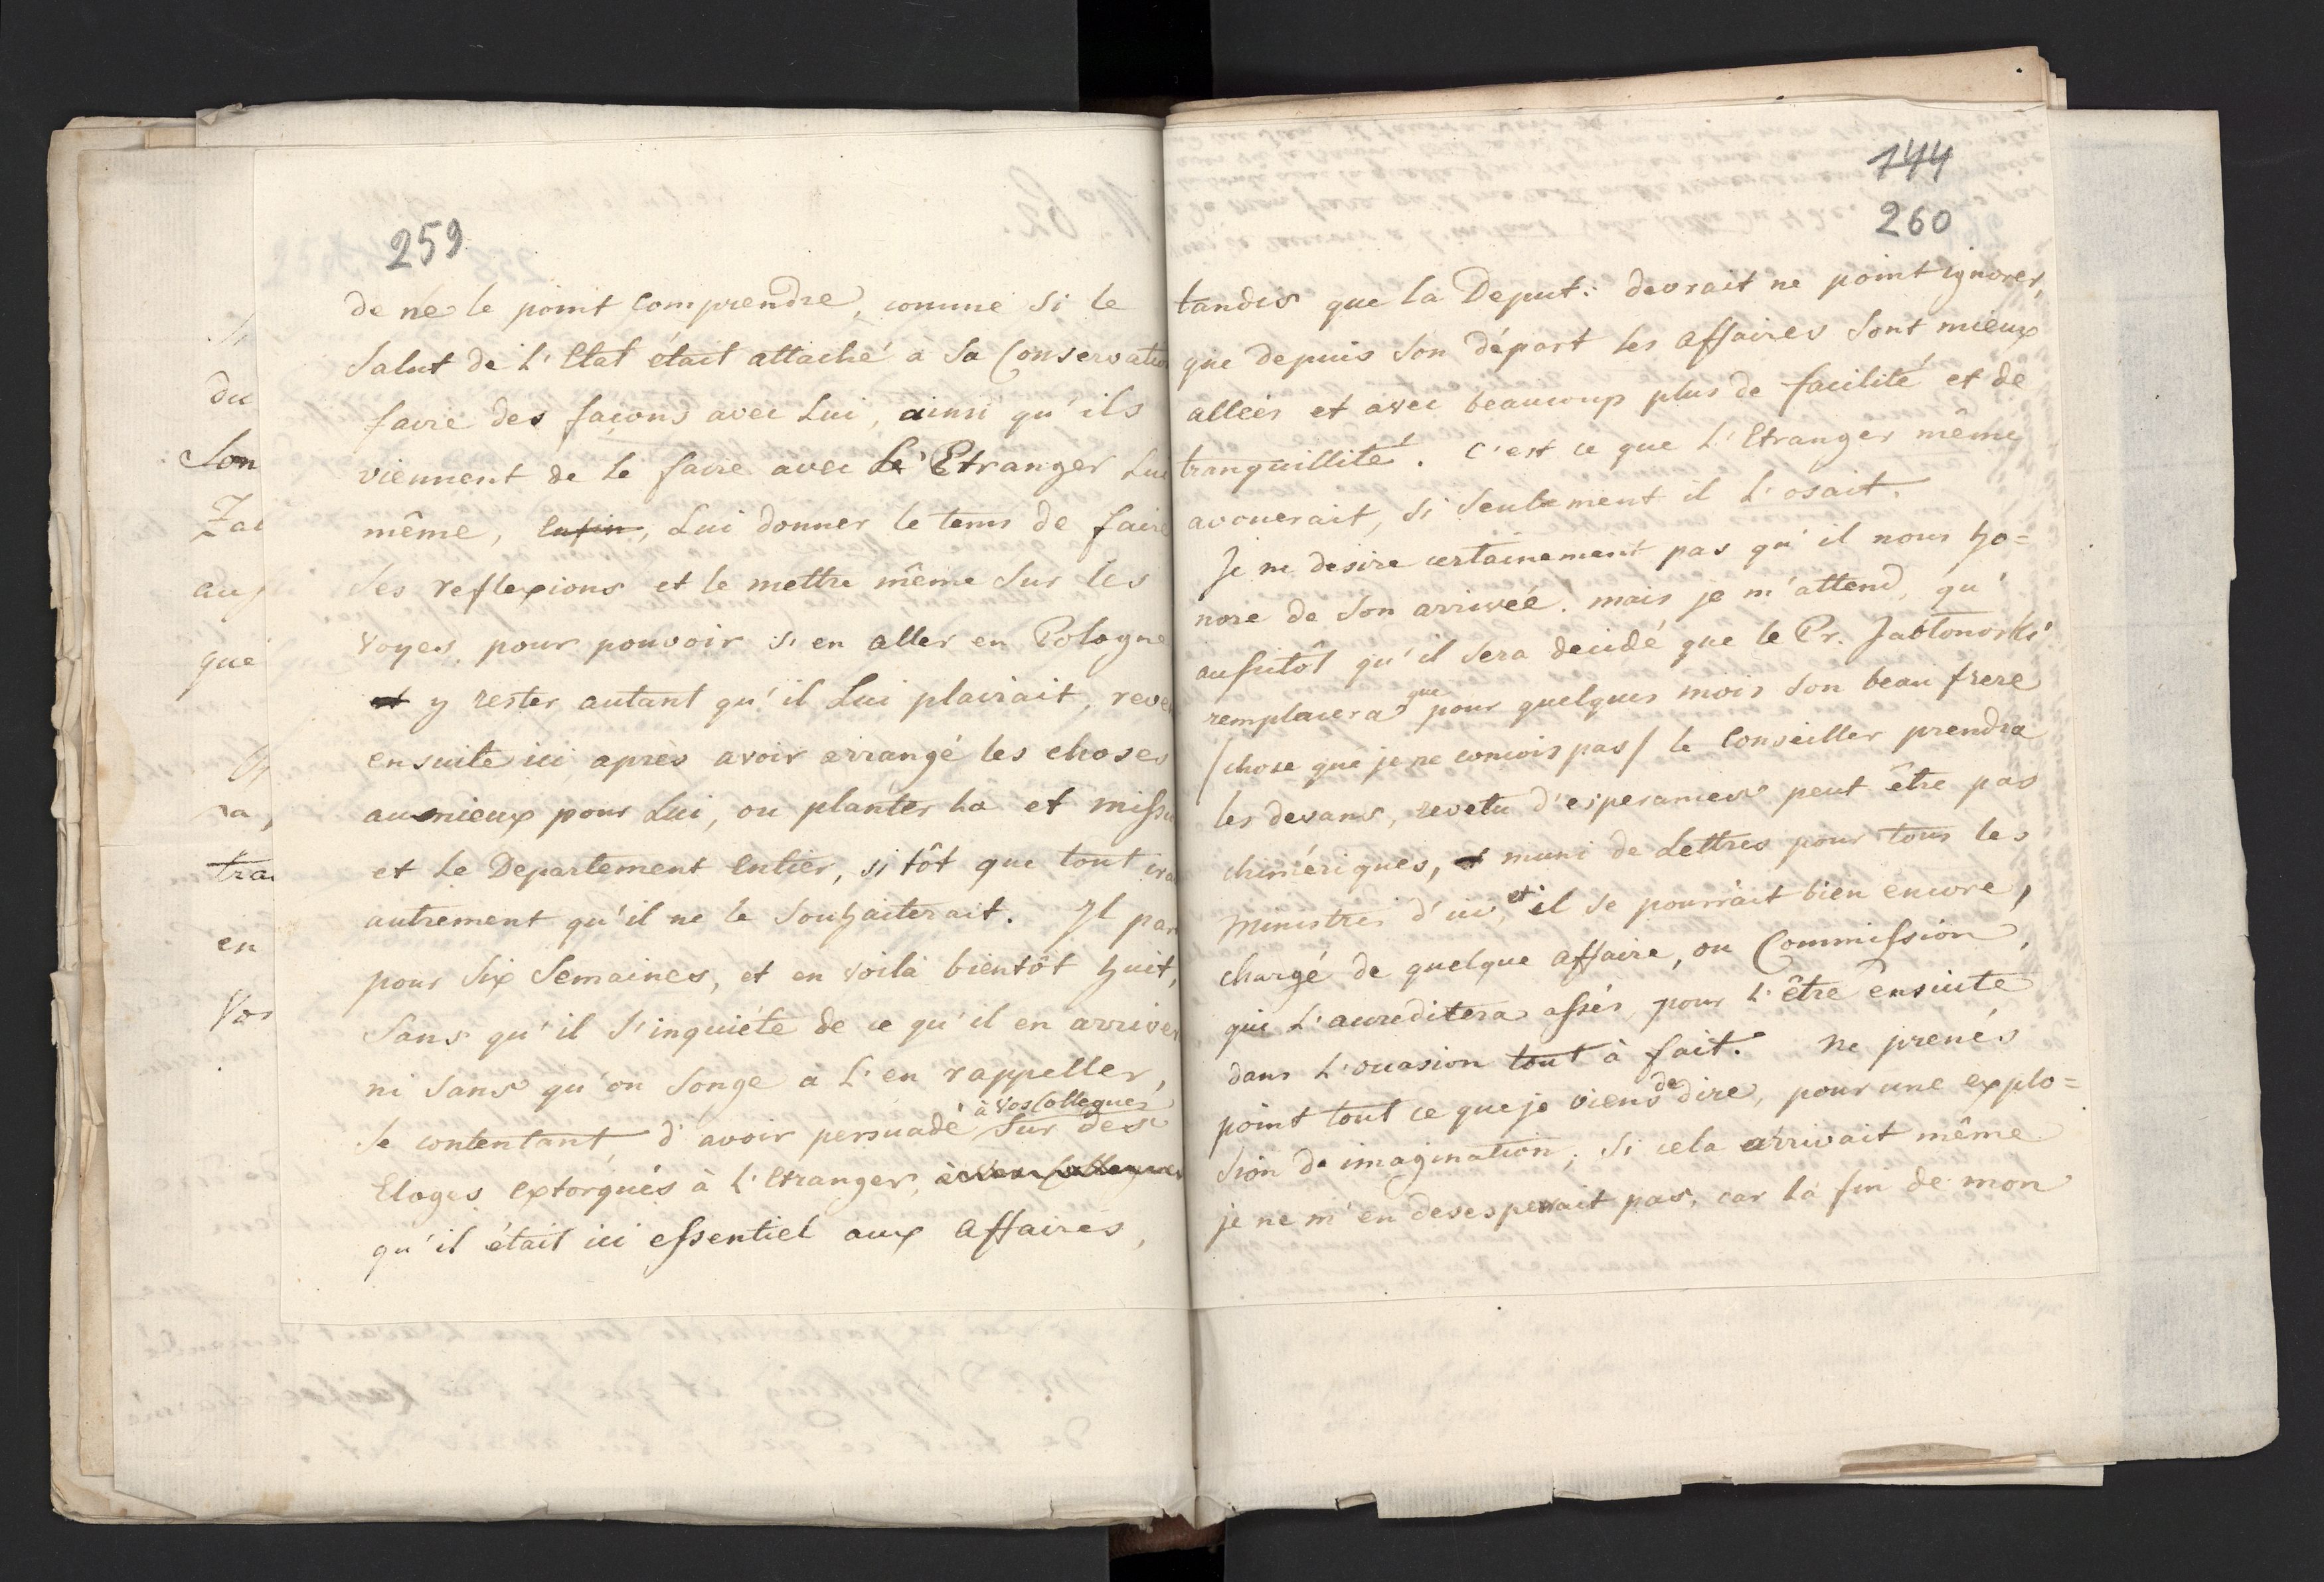 259
de ne le point comprendre, comme si le
Salut de l'Etat était attaché a sa Conservatio
faire des façons avec Lui, ainsi qu'ils
viennent de le faire avec L'Etranger Lui
même, enfin, Lui donner le tems de faire
ses reflexions et le mettre même sur les
voyes, pour pouvoir s'en aller en Pologne
et y rester autant qu'il Lui plairait, reve
ensuite ici après avoir arrangé les choses
au mieux pour Lui, ou planter la et missi
et le Departement entier, si tôt que tout ira
autrement qu'il ne le souhaiterait. Il par
pour six Semaines, et en voilà bientôt huit,
Sans qu'il s'inquiéte de ce qu'il en arriver
ni sans qu'on songe à l'en rappeller,
à vos Collegues
se contentant, d'avoir persuadé sur des
Eloges extorqués à l'Etranger, à vos Collegues
qu'il était ici essentiel aux affaires,
du
Son
Zal
que
tra
en
Vos
144
260
tandis que la Deput: devrait ne point ignorer,
que depuis son départ les affaires sont mieux
allées et avec beaucoup plus de facilité et de
tranquillité. C'est ce que l'Etranger même
avouerait, si seulement il l'osait.
Je ne desire certainement pas qu'il nous ho=
nore de son arrivée. mais je m'attend, qu'
aussitôt qu'il sera decidé que le Pr. Jablonowski
que
remplacera pour quelques mois son beau frere
/chose que je ne concois pas/ le Conseiller prendra
les devans, revetu d'esperances peut être pas
chimériques, et muni de Lettres pour tous les
Ministres d'ici, et il se pourrait bien encore,
chargé de quelque affaire, ou Commission,
qui l'accreditera assés pour l'être ensuite
dans l'occasion tout à fait. Ne prenés
point tout ce que je viens de dire, pour une explo=
sion de imagination; si cela arrivait même
je ne m'en desesperait pas, car la fin de mon